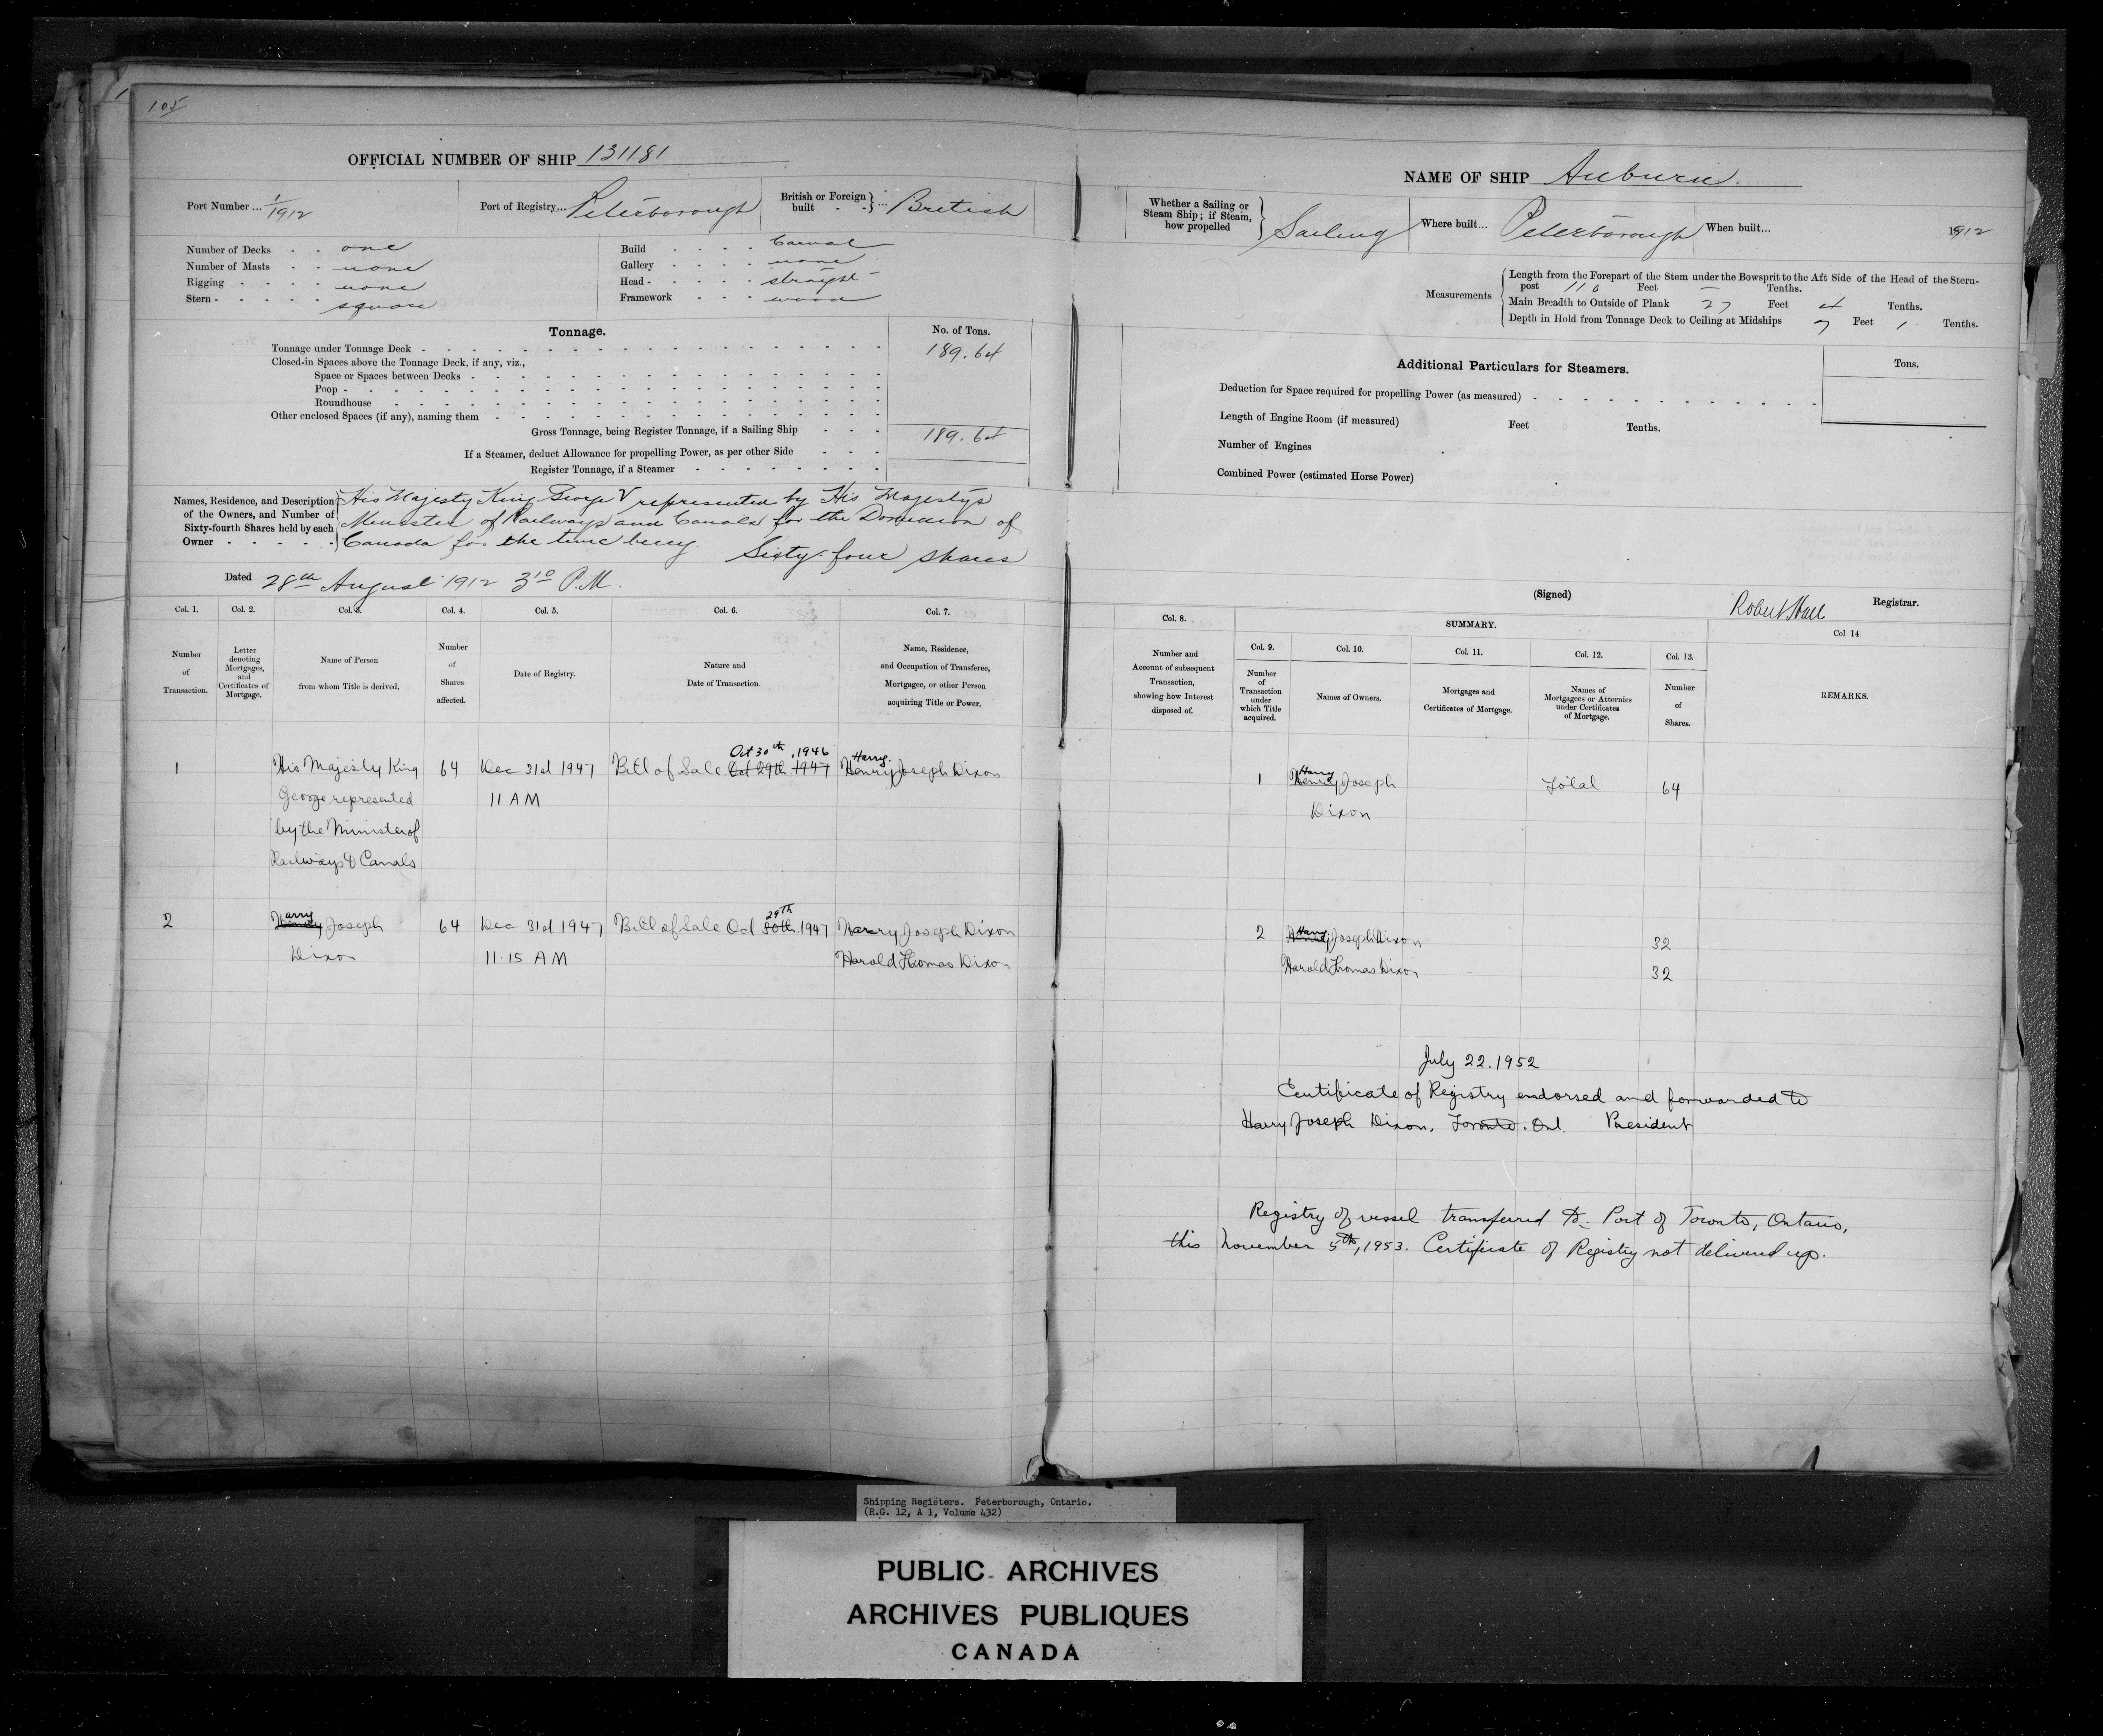 105
OFFICIAL NUMBER OF SHIP 131181
Port Number ... 1/1912
Port of Registry... Peterborough
British or Foreign built } ... British
Number of Decks - - one
Number of Masts - - none
Rigging - - - - none
Stern - - - - - square
Build - - - - Carval
Gallery - - - - none
Head - - - - - straight
Framework - - - wood
Tonnage.
No. of Tons.
Tonnage under Tonnage Deck 189.64
Closed-in Spaces above the Tonnage Deck, if any, viz.,
Space or Spaces between Decks
Poop
Roundhouse
Other enclosed Spaces (if any), naming them
Gross Tonnage, being Register Tonnage, if a Sailing Ship 189.64
If a Steamer, deduct Allowance for propelling Power, as per other Side
Register Tonnage, if a Steamer
Names, Residence, and Description
of the Owners, and Number of
Sixty-fourth Shares held by each
Owner
His Majesty King George V represented by His Majesty's
Minister of Railways and Canals for the Dominion of
Canada for the time being. Sixty-four shares
Dated 28th August 1912 3 10 P.M.
Col. 1.
Number
of
Transaction.
Col. 2.
Letter
denoting
Mortgages,
and
Certificates of
Mortgage.
Col. 3.
Name of Person
from whom Title is derived.
Col. 4.
Number
of
Shares
affected.
Col. 5.
Date of Registry.
Col. 6.
Nature and
Date of Transaction.
Col. 7.
Name, Residence,
and Occupation of Transferee,
Mortgagee, or other Person
acquiring Title or Power.
Oct 30th, 1946 Harry
1 His Majesty King 64 Dec 31st 1947 Bill of Sale Oct 29th 1947 Henry Joseph Dixon
George represented 11 AM
by the Minister of
Railways & Canals
arry 29th
2 Henry Joseph 64 Dec 31st 1947 Bill of Sale Oct 30th 1947 Harry Joseph Dixon
Dixon 11.15 AM Harold Thomas Dixon
NAME OF SHIP Auburn.
Whether a Sailing or
Steam Ship; if Steam,
how propelled } Sailing
Where built... Peterborough
When built... 1912
Measurements
Length from the Forepart of the Stem under the Bowsprit to the Aft Side of the Head of the Stern-
post 110 Feet — Tenths.
Main Breadth to Outside of Plank 27 Feet 4 Tenths.
Depth in Hold from Tonnage Deck to Ceiling at Midships 7 Feet 1 Tenths.
Additional Particulars for Steamers.
Tons.
Deduction for Space required for propelling Power (as measured)
Length of Engine Room (if measured) Feet Tenths.
Number of Engines
Combined Power (estimated Horse Power)
(Signed) Robert Hall Registrar.
Col. 8.
Number and
Account of subsequent
Transaction,
showing how Interest
disposed of.
SUMMARY.
Col. 9.
Number
of
Transaction
under
which Title
acquired.
Col. 10.
Names of Owners.
Col. 11.
Mortgages and
Certificates of Mortgage.
Col. 12.
Names of
Mortgagees or Attornies
under Certificates
of Mortgage.
Col. 13.
Number
of
Shares.
Col 14.
REMARKS.
Harry
1 Henry Joseph Total 64
Dixon
Harry
2 Henry Joseph Dixon 32
Harold Thomas Dixon 32
July 22. 1952
Certificate of Registry endorsed and forwarded to
Harry Joseph Dixon. Toronto. Ont. President
Registry of vessel transferred to Port of Toronto, Ontario,
this November 5th, 1953. Certificate of Registry not delivered up.
Shipping Registers. Peterborough, Ontario.
(R.G. 12, A 1, Volume 432)
PUBLIC ARCHIVES
ARCHIVES PUBLIQUES
CANADA